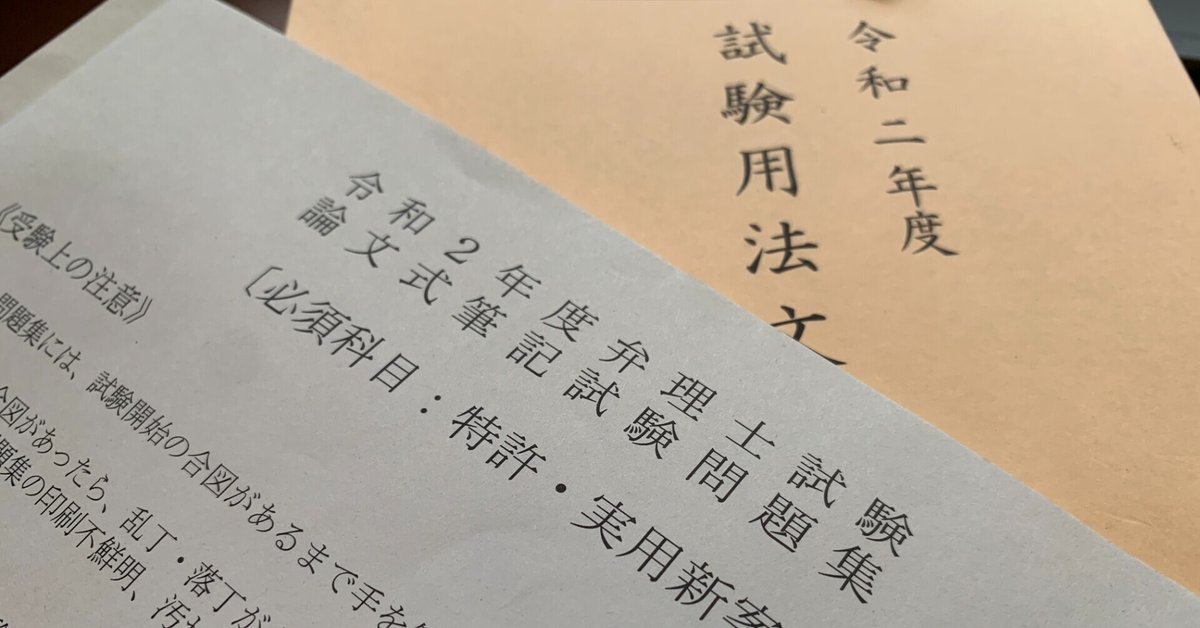 令和2年度弁理士試験
論文式筆記試験問題集
〔必須科目：特許・実用新案
《受験上の注意》
問題集には、試験開始の合図があるまで手を
合図があったら、乱丁・落丁が
題集の印刷不鮮明、汚
令和二年度
試験用法文